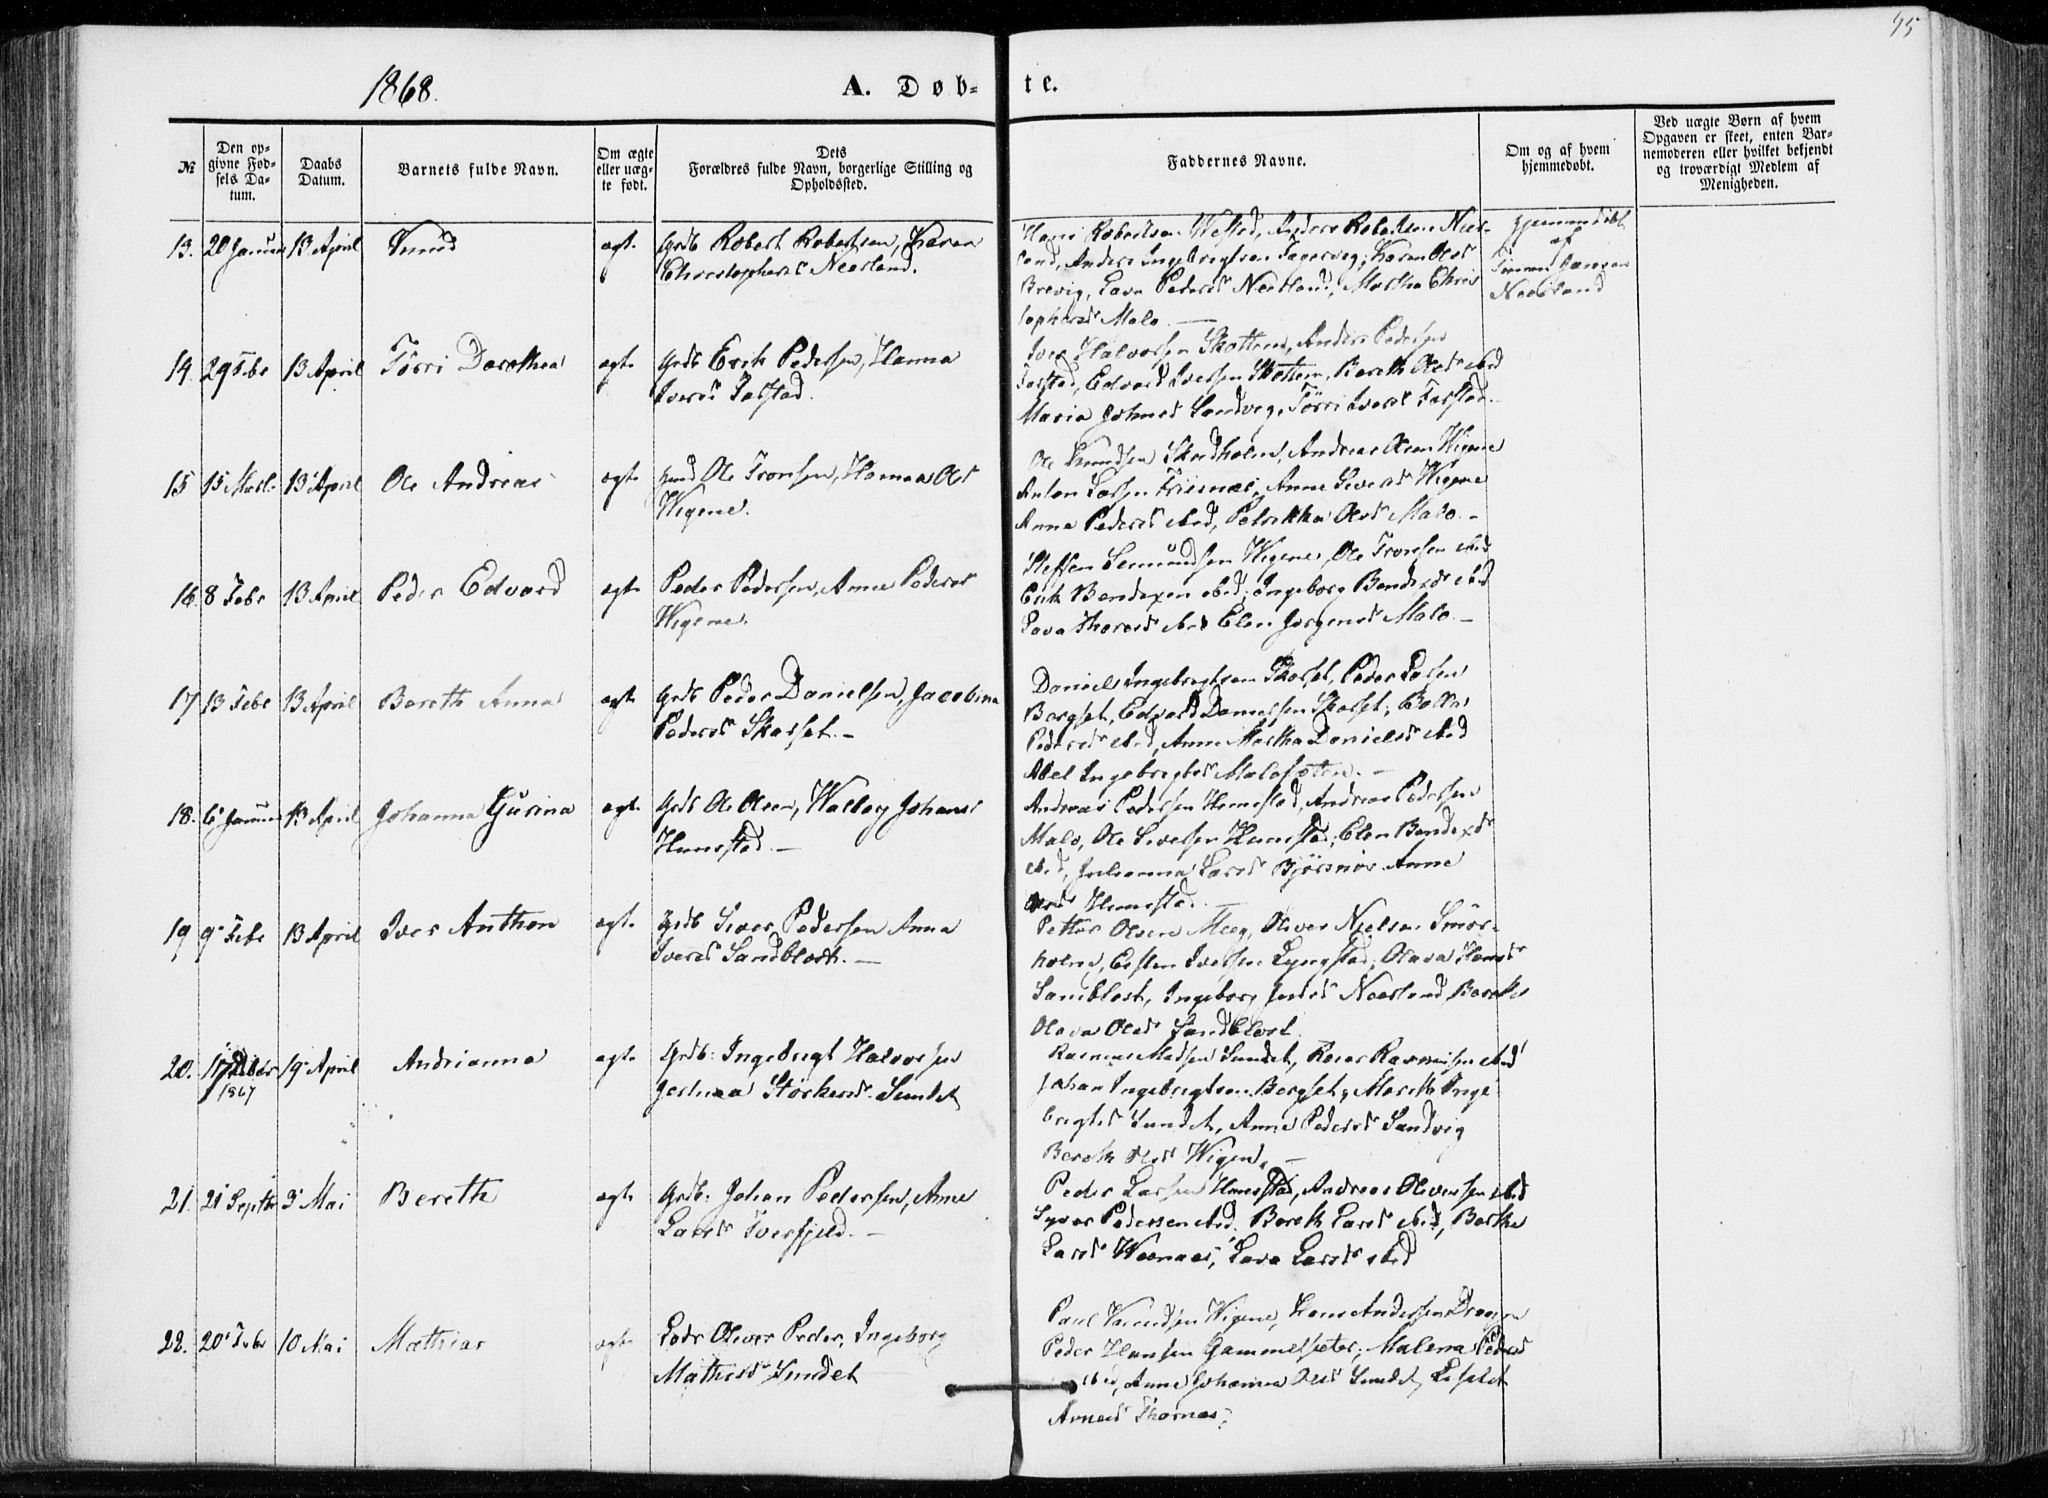 45
1868.
A. Døb-
te.
№
Den op-
givne Fød-
sels Da-
tum.
Daabs
Datum.
Barnets fulde Navn.
Om ægte
eller uæg-
te født.
Dets
Forældres fulde Navn, borgerlige Stilling og
Opholdssted.
Faddernes Navne.
Om og af hvem
hjemmedøbt.
Ved uægte Børn af hvem
Opgaven er skeet, enten Bar-
nemoderen eller hvilket bekjendt
og troværdigt Medlem af
Menigheden.
13. 20 Januar 13 April Knud ægt. Grdb Robert Robertsen, Karen
Christophersd Neerland.
Hans Robertsen Wefstad, Anders Robertsen Neer-
land, Anders Ingebrigtsen Farervig; Karen Olsd
Brevig, Lava Pedersd Neerland, Martha Chris
tophersd Malo. —
hjemmedøbt
af
Simon Jansen
Neerland
14. 29 Febr 13 April Törri Dorothea ægt. Grdb Erik Pedersen, Hanna
Iversd Farstad.
Iver Halvorsen Skottem, Anders Pedersen
Farstad, Edvard Iversen Skottem, Bereth Olsd ibid
Maria Johnsd Sandvig, Törri Iversd Farstad.
15 15 Marts 13 April Ole Andreas ægt. Ole Tronsen, Hanna Olsd
Wigene.
Ole Knudsen Skredholm, Andreas Olsen Wigene
Anton Larsen Friisnæs; Anne Siversd Wigene
Anna Pedersd ibid, Petrikka Olsd Malo. —
16. 8 Febr 13 April Peder Edvard ægt. Peder Pedersen, Anne Pedersd
Wigene.
Steffen Semundsen Wigene, Ole Tronsen ibid
Erik Bendixen ibid; Ingeborg Bendixd ibid
Lava Thoresd ibid Elen Jørgensd Malo. —
17 13 Febr 13 April Bereth Anna ægt Grdb Peder Danielsen, Jacobina
Pedersd Skarset. —
Daniel Ingebrigtsen Skarset, Peder Larsen
Bergset, Edvard Danielsen Skarset;
Pedersd ibid, Anne Martha Danielsd ibid
Abel Ingebrigtsd Malesæten. —
18. 6 Januar 13 April Johanna Gurina ægt. Grdb Ole Olsen, Walborg Johansd
Hunestad. —
Andreas Pedersen Hunestad, Andreas Pedersen
Malo, Ole Siversen Hunestad; Elen Bendixd
ibid, Julianna Larsd Bjørsnøs Anne
Olsd Hunestad. —
19 9 Febr 13 April Iver Anthon ægt. Grdb Siver Pedersen Anna
Iversd Sandblost. —
Petter Olsen Meeg, Oliver Nielsen Smör-
holm, Eisten Iversen Lyngstad; Olava Hansd
Sandblost, Ingeborg Neerland
Olava Olsd Sandblost.
20. 17 Decbr 19 April Andrianna ægt. Grdb. Ingebrigt Halvorsen
1867
Størkersd Sundet
Rasmus Madsen Sundet, Rasmussen ibid
Johan Ingebrigtsen Bergset; Mareth Inge-
brigtsd Sundet, Anne Pedersd Sandvig
Bereth Olsd Wigen. —
21. 21 Septbr 3 Mai Bereth ægt. Grdb. Johan Pedersen, Anne
Larsd Tverfjeld. —
Peder Larsen Hunestad, Andreas Oliversen ibid
Syver Pedersen ibid. Bereth Larsd ibid,
Larsd Weenaas, Lava Larsd ibid
22. 20 Febr 10 Mai Mathias ægt. Oliver Peder, Ingeborg
Mathisd Sundet
Paul Wigene, Hans Andersen Dragen
Peder Hansen Gammelsæter; Malena Pedersd
ibid, Anne Johanna Olsd Sundet,
Arnesd Thornæs.